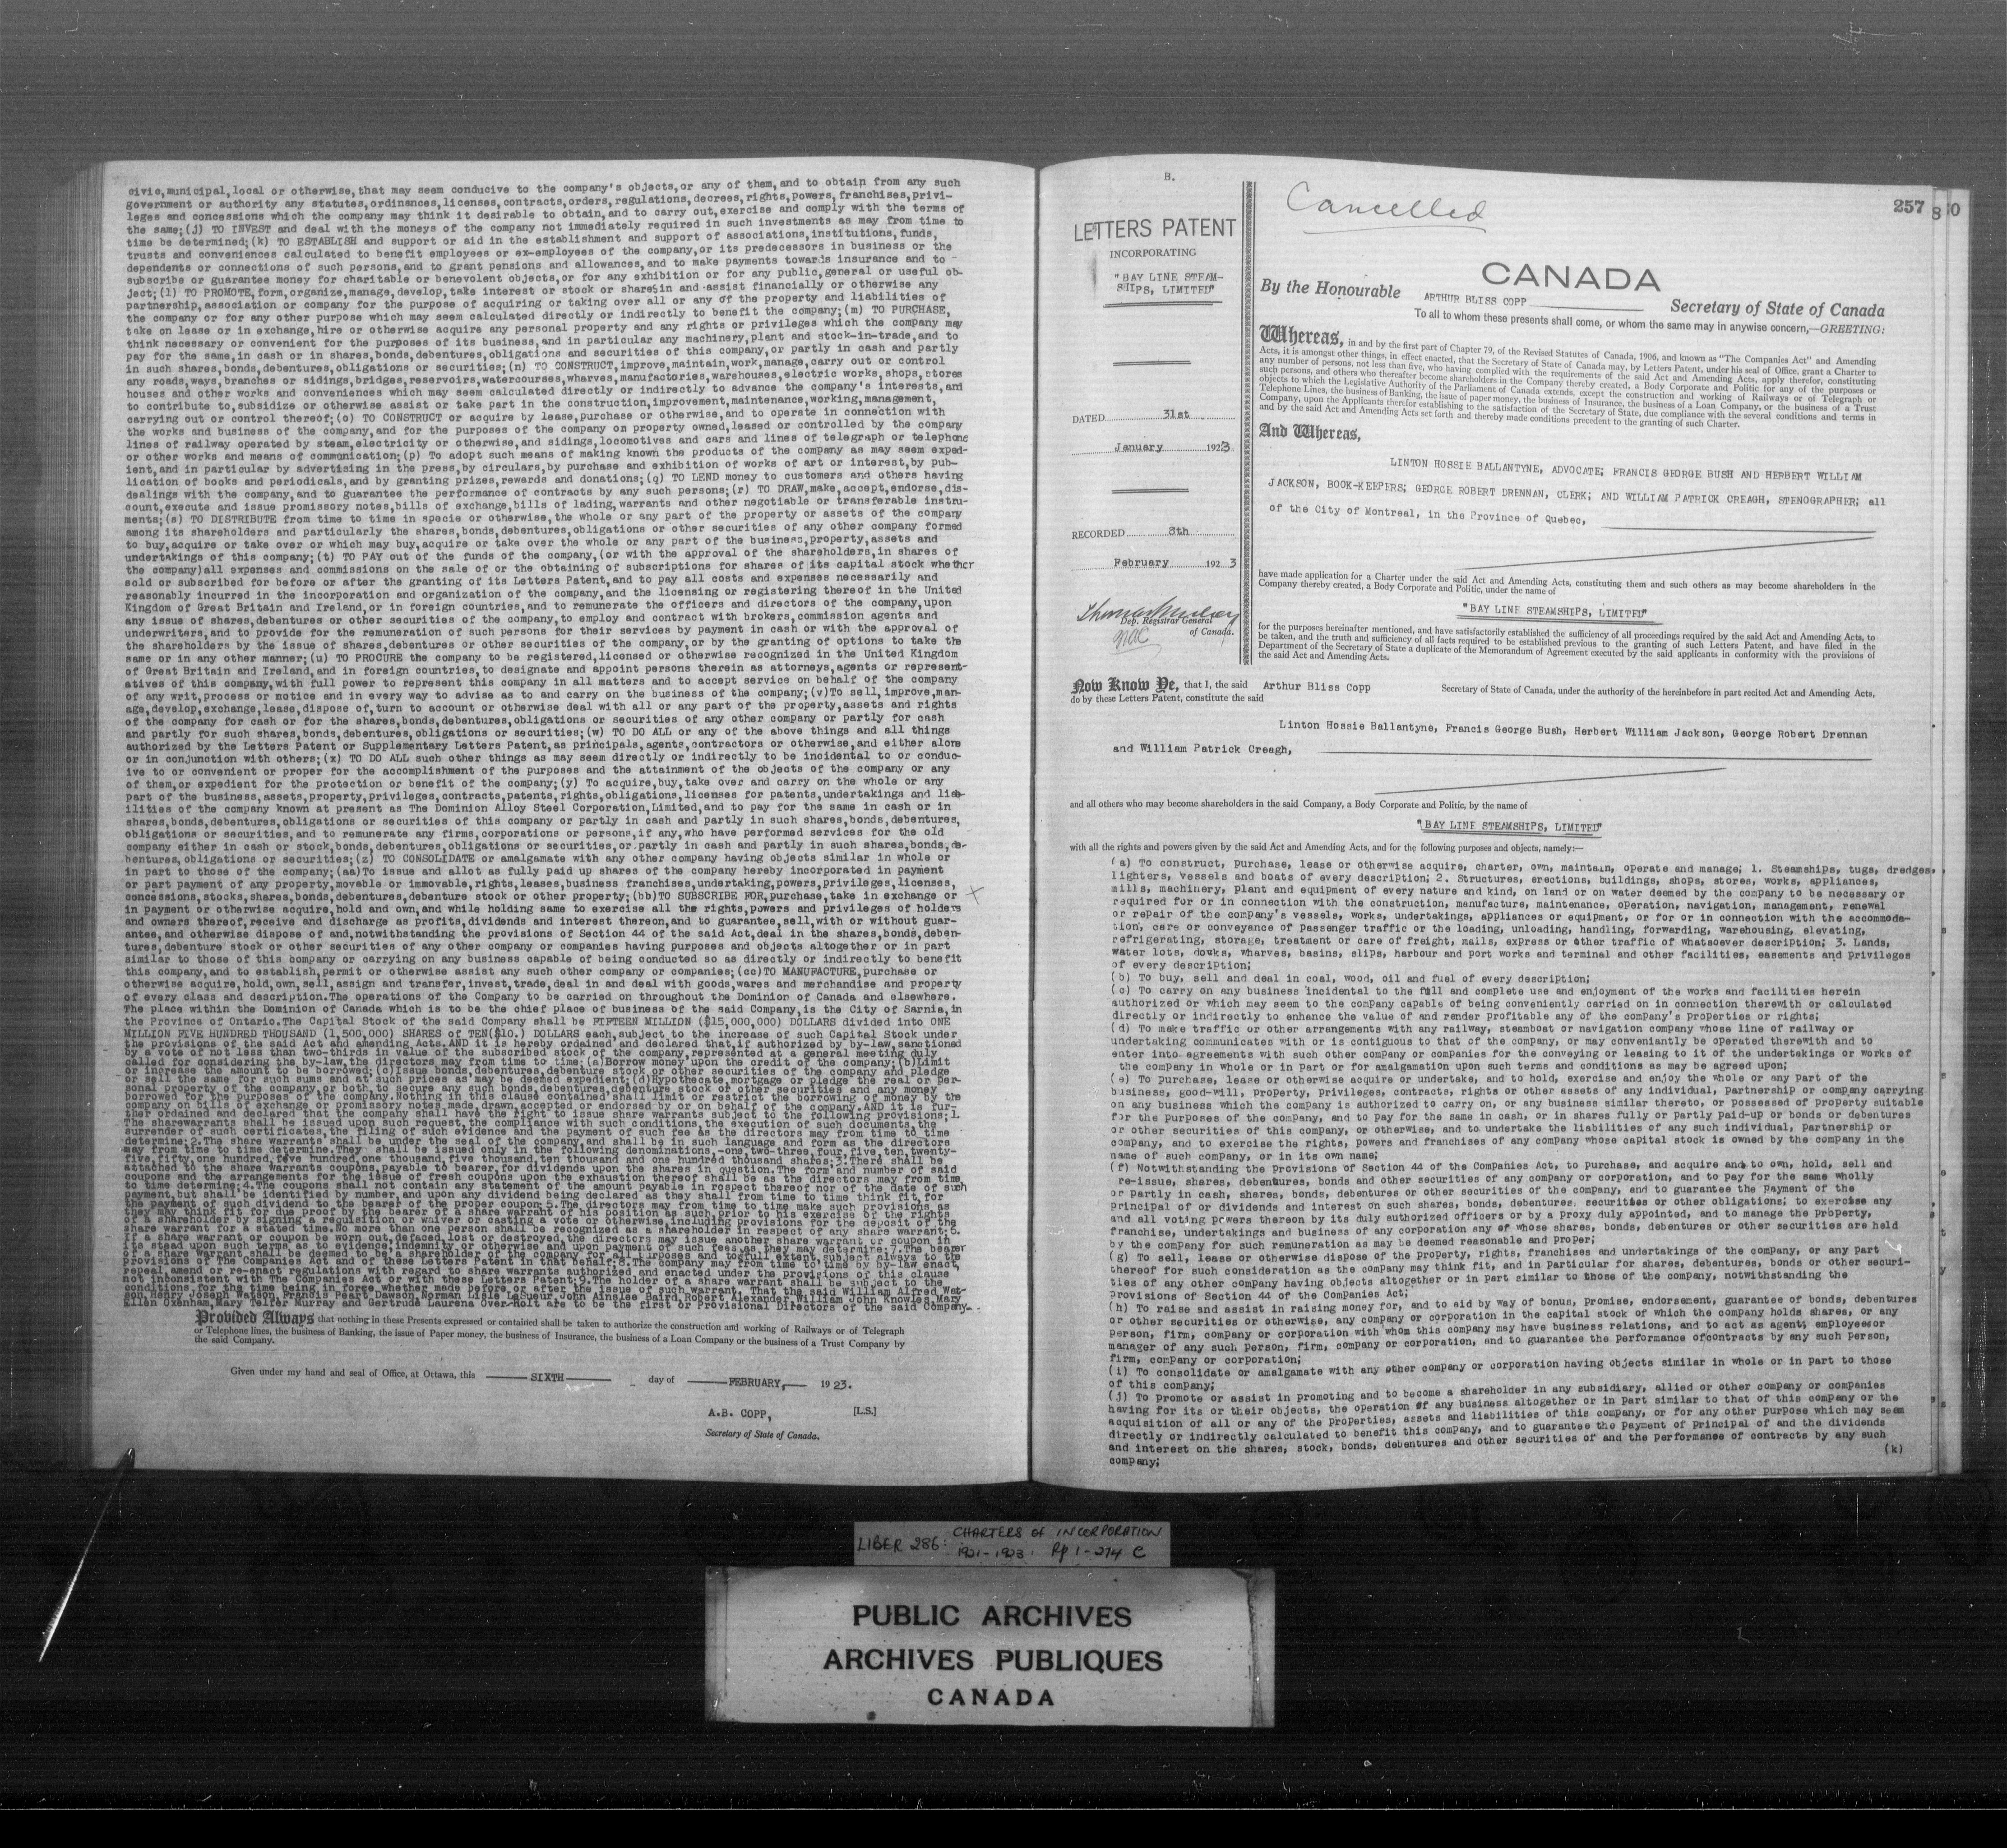 civic,municipal,local or otherwise,that may seem conducive to the company's objects,or any of them,and to obtain from any such
government or authority any statutes,ordinances,licenses,contracts,orders,regulations,decrees,rights,powers,franchises,privi-
leges and concessions which the company may think it desirable to obtain,and to carry out,exercise and comply with the terms of
the same;(j) TO INVEST and deal with the moneys of the company not immediately required in such investments as may from time to
time be determined;(k) TO ESTABLISH and support or aid in the establishment and support of associations,institutions,funds,
trusts and conveniences calculated to benefit employees or ex-employees of the company,or its predecessors in business or the
dependents or connections of such persons,and to grant pensions and allowances,and to make payments towards insurance and to
subscribe or guarantee money for charitable or benevolent objects,or for any exhibition or for any public,general or useful ob-
ject;(l) TO PROMOTE,form,organize,manage,develop,take interest or stock or shares in and assist financially or otherwise any
partnership,association or company for the purpose of acquiring or taking over all or any of the property and liabilities of
the company or for any other purpose which may seem calculated directly or indirectly to benefit the company;(m) TO PURCHASE,
take on lease or in exchange,hire or otherwise acquire any personal property and any rights or privileges which the company may
think necessary or convenient for the purposes of its business,and in particular any machinery,plant and stock-in-trade,and to
pay for the same,in cash or in shares,bonds,debentures,obligations and securities of this company,or partly in cash and partly
in such shares,bonds,debentures,obligations or securities;(n) TO CONSTRUCT,improve,maintain,work,manage,carry out or control
any roads,ways,branches or sidings,bridges,reservoirs,watercourses,wharves,manufactories,warehouses,electric works,shops,stores
houses and other works and conveniences which may seem calculated directly or indirectly to advance the company's interests,and
to contribute to,subsidize or otherwise assist or take part in the construction,improvement,maintenance,working,management,
carrying out or control thereof;(o) TO CONSTRUCT or acquire by lease,purchase or otherwise,and to operate in connection with
the works and business of the company,and for the purposes of the company on property owned,leased or controlled by the company
lines of railway operated by steam,electricity or otherwise,and sidings,locomotives and cars and lines of telegraph or telephone
or other works and means of communication;(p) To adopt such means of making known the products of the company as may seem exped-
ient,and in particular by advertising in the press,by circulars,by purchase and exhibition of works of art or interest,by pub-
lication of books and periodicals,and by granting prizes,rewards and donations;(q) TO LEND money to customers and others having
dealings with the company,and to guarantee the performance of contracts by any such persons;(r) TO DRAW,make,accept,endorse,dis-
count,execute and issue promissory notes,bills of exchange,bills of lading,warrants and other negotiable or transferable instru-
ments;(s) TO DISTRIBUTE from time to time in specie or otherwise,the whole or any part of the property or assets of the company
among its shareholders and particularly the shares,bonds,debentures,obligations or other securities of any other company formed
to buy,acquire or take over or which may buy,acquire or take over the whole or any part of the business,property,assets and
undertakings of this company;(t) TO PAY out of the funds of the company,(or with the approval of the shareholders,in shares of
the company)all expenses and commissions on the sale of or the obtaining of subscriptions for shares of its capital stock whether
sold or subscribed for before or after the granting of its Letters Patent,and to pay all costs and expenses necessarily and
reasonably incurred in the incorporation and organization of the company,and the licensing or registering thereof in the United
Kingdom of Great Britain and Ireland,or in foreign countries,and to remunerate the officers and directors of the company,upon
any issue of shares,debentures or other securities of the company,to employ and contract with brokers,commission agents and
underwriters,and to provide for the remuneration of such persons for their services by payment in cash or with the approval of
the shareholders by the issue of shares,debentures or other securities of the company,or by the granting of options to take the
same or in any other manner;(u) TO PROCURE the company to be registered,licensed or otherwise recognized in the United Kingdom
of Great Britain and Ireland,and in foreign countries,to designate and appoint persons therein as attorneys,agents or represent-
atives of this company,with full power to represent this company in all matters and to accept service on behalf of the company
of any writ,process or notice and in every way to advise as to and carry on the business of the company;(v)To sell,improve,man-
age,develop,exchange,lease,dispose of,turn to account or otherwise deal with all or any part of the property,assets and rights
of the company for cash or for the shares,bonds,debentures,obligations or securities of any other company or partly for cash
and partly for such shares,bonds,debentures,obligations or securities;(w) TO DO ALL or any of the above things and all things
authorized by the Letters Patent or Supplementary Letters Patent,as principals,agents,contractors or otherwise,and either alone
or in conjunction with others;(x) TO DO ALL such other things as may seem directly or indirectly to be incidental to or conduc-
ive to or convenient or proper for the accomplishment of the purposes and the attainment of the objects of the company or any
of them,or expedient for the protection or benefit of the company;(y) To acquire,buy,take over and carry on the whole or any
part of the business,assets,property,privileges,contracts,patents,rights,obligations,licenses for patents,undertakings and liab-
ilities of the company known at present as The Dominion Alloy Steel Corporation,Limited,and to pay for the same in cash or in
shares,bonds,debentures,obligations or securities of this company or partly in cash and partly in such shares,bonds,debentures,
obligations or securities,and to remunerate any firms,corporations or persons,if any,who have performed services for the old
company either in cash or stock,bonds,debentures,obligations or securities,or partly in cash and partly in such shares,bonds,de-
bentures,obligations or securities;(z) TO CONSOLIDATE or amalgamate with any other company having objects similar in whole or
in part to those of the company;(aa)To issue and allot as fully paid up shares of the company hereby incorporated in payment
or part payment of any property,movable or immovable,rights,leases,business franchises,undertaking,powers,privileges,licenses,
concessions,stocks,shares,bonds,debentures,debenture stock or other property;(bb)TO SUBSCRIBE FOR,purchase,take in exchange or
in payment or otherwise acquire,hold and own,and while holding same to exercise all the rights,powers and privileges of holders
and owners thereof,receive and discharge as profits,dividends and interest thereon,and to guarantee,sell,with or without guar-
antee,and otherwise dispose of and,notwithstanding the provisions of Section 44 of the said Act,deal in the shares,bonds,deben-
tures,debenture stock or other securities of any other company or companies having purposes and objects altogether or in part
similar to those of this company or carrying on any business capable of being conducted so as directly or indirectly to benefit
this company,and to establish,permit or otherwise assist any such other company or companies;(cc)TO MANUFACTURE,purchase or
otherwise acquire,hold,own,sell,assign and transfer,invest,trade,deal in and deal with goods,wares and merchandise and property
of every class and description.The operations of the Company to be carried on throughout the Dominion of Canada and elsewhere.
The place within the Dominion of Canada which is to be the chief place of business of the said Company,is the City of Sarnia,in
the Province of Ontario.The Capital Stock of the said Company shall be FIFTEEN MILLION ($15,000,000) DOLLARS divided into ONE
MILLION FIVE HUNDRED THOUSAND (1,500,000) SHARES of TEN($10.) DOLLARS each,subject to the increase of such Capital Stock under
the provisions of the said Act and amending Acts.AND it is hereby ordained and declared that,if authorized by by-law,sanctioned
by a vote of not less than two-thirds in value of the subscribed stock of the company,represented at a general meeting duly
called for considering the by-law,the directors may from time to time:(a)Borrow money upon the credit of the company;(b)Limit
or increase the amount to be borrowed;(c)Issue bonds,debentures,debenture stock or other securities of the company and pledge
or sell the same for such sums and at such prices as may be deemed expedient;(d)Hypothecate,mortgage or pledge the real or per-
sonal property of the company,or both,to secure any such bonds,debentures,debenture stock or other securities and any money
borrowed for the purposes of the company.Nothing in this clause contained shall limit or restrict the borrowing of money by the
company on bills of exchange or promissory notes made,drawn,accepted or endorsed by or on behalf of the company.AND it is fur-
ther ordained and declared that the company shall have the right to issue share warrants subject to the following provisions;1.
The sharewarrants shall be issued upon such request,the compliance with such conditions,the execution of such documents,the
surrender of such certificates,the filing of such evidence and the payment of such fee as the directors may from time to time
determine;2.The share warrants shall be under the seal of the company,and shall be in such language and form as the directors
may from time to time determine.They shall be issued only in the following denominations,-one,two-three,four,five,ten,twenty-
five,fifty,one hundred,five hundred,one thousand,five thousand,ten thousand and one hundred thousand shares;3.There shall be
attached to the share warrants coupons,payable to bearer,for dividends upon the shares in question.The form and number of said
coupons and the arrangements for the issue of fresh coupons upon the exhaustion thereof shall be as the directors may from time
to time determine;4.The coupons shall not contain any statement of the amount payable in respect thereof nor of the date of such
payment,but shall be identified by number,and upon any dividend being declared as they shall from time to time think fit,for
the payment of such dividend to the bearer of the proper coupon;5.The directors may from time to time make such provisions as
they may think fit for due proof by the bearer of a share warrant of his position as such,prior to his exercise of the rights
of a shareholder by signing a requisition or waiver or casting a vote or otherwise,including provisions for the deposit of the
share warrant for a stated time.No more than one person shall be recognized as a shareholder in respect of any share warrant;6.
If a share warrant or coupon be worn out,defaced,lost or destroyed,the directors may issue another share warrant or coupon in
its stead upon such terms as to evidence,indemnity or otherwise and upon payment of such fees as they may determine;7.The bearer
of a share warrant shall be deemed to be a shareholder of the company for all purposes and to full extent,subject always to the
provisions of The Companies Act and of these Letters Patent in that behalf;8.The company may from time to time by by-law enact,
repeal,amend or re-enact regulations with regard to share warrants authorized and enacted under the provisions of this clause
not inconsistent with The Companies Act or with these Letters Patent;9.The holder of a share warrant shall be subject to the
conditions for the time being in force,whether made before or after the issue of such warrant. That the said William Alfred Wat-
son,Henry Joseph Watson,Francis Peart Dawson,Norman Lisle LeSueur,John Ainslee Baird,Robert Alexander,William John Knowles,Mary
Ellen Oxenham,Mary Telfer Murray and Gertrude Laurena Over-Holt are to be the first or Provisional Directors of the said Company.
Provided Always that nothing in these Presents expressed or contained shall be taken to authorize the construction and working of Railways or of Telegraph
or Telephone lines, the business of Banking, the issue of Paper money, the business of Insurance, the business of a Loan Company or the business of a Trust Company by
the said Company.
Given under my hand and seal of Office, at Ottawa, this SIXTH day of FEBRUARY, 1923.
A.B. COPP, [L.S.]
Secretary of State of Canada.
B.
LETTERS PATENT
INCORPORATING
"BAY LINE STEAM-
SHIPS, LIMITED"
DATED 31st
January 1923
RECORDED 8th
February 1923
Dep. Registrar General
of Canada.
Cancelled
257
8
30
CANADA
By the Honourable ARTHUR BLISS COPP Secretary of State of Canada
To all to whom these presents shall come, or whom the same may in anywise concern,—GREETING:
Whereas, in and by the first part of Chapter 79, of the Revised Statutes of Canada, 1906, and known as "The Companies Act" and Amending
Acts, it is amongst other things, in effect enacted, that the Secretary of State of Canada may, by Letters Patent, under his seal of Office, grant a Charter to
any number of persons, not less than five, who having complied with the requirements of the said Act and Amending Acts, apply therefor, constituting
such persons, and others who thereafter become shareholders in the Company thereby created, a Body Corporate and Politic for any of the purposes or
objects to which the Legislative Authority of the Parliament of Canada extends, except the construction and working of Railways or of Telegraph or
Telephone Lines, the business of Banking, the issue of paper money, the business of Insurance, the business of a Loan Company, or the business of a Trust
Company, upon the Applicants therefor establishing to the satisfaction of the Secretary of State, due compliance with the several conditions and terms in
and by the said Act and Amending Acts set forth and thereby made conditions precedent to the granting of such Charter.
And Whereas,
LINTON HOSSIE BALLANTYNE, ADVOCATE; FRANCIS GEORGE BUSH AND HERBERT WILLIAM
JACKSON, BOOK-KEEPERS; GEORGE ROBERT DRENNAN, CLERK; AND WILLIAM PATRICK CREAGH, STENOGRAPHER; all
of the City of Montreal, in the Province of Quebec,
have made application for a Charter under the said Act and Amending Acts, constituting them and such others as may become shareholders in the
Company thereby created, a Body Corporate and Politic, under the name of
"BAY LINE STEAMSHIPS, LIMITED"
for the purposes hereinafter mentioned, and have satisfactorily established the sufficiency of all proceedings required by the said Act and Amending Acts, to
be taken, and the truth and sufficiency of all facts required to be established previous to the granting of such Letters Patent, and have filed in the
Department of the Secretary of State a duplicate of the Memorandum of Agreement executed by the said applicants in conformity with the provisions of
the said Act and Amending Acts.
Now Know Ye, that I, the said Arthur Bliss Copp Secretary of State of Canada, under the authority of the hereinbefore in part recited Act and Amending Acts,
do by these Letters Patent, constitute the said
Linton Hossie Ballantyne, Francis George Bush, Herbert William Jackson, George Robert Drennan
and William Patrick Creagh,
and all others who may become shareholders in the said Company, a Body Corporate and Politic, by the name of
"BAY LINE STEAMSHIPS, LIMITED"
with all the rights and powers given by the said Act and Amending Acts, and for the following purposes and objects, namely:—
(a) To construct, purchase, lease or otherwise acquire, charter, own, maintain, operate and manage; 1. Steamships, tugs, dredges,
lighters, vessels and boats of every description; 2. Structures, erections, buildings, shops, stores, works, appliances,
mills, machinery, plant and equipment of every nature and kind, on land or on water deemed by the company to be necessary or
required for or in connection with the construction, manufacture, maintenance, operation, navigation, management, renewal
or repair of the company's vessels, works, undertakings, appliances or equipment, or for or in connection with the accommoda-
tion, care or conveyance of passenger traffic or the loading, unloading, handling, forwarding, warehousing, elevating,
refrigerating, storage, treatment or care of freight, mails, express or other traffic of whatsoever description; 3. Lands,
water lots, docks, wharves, basins, slips, harbour and port works and terminal and other facilities, easements and privileges
of every description;
(b) To buy, sell and deal in coal, wood, oil and fuel of every description;
(c) To carry on any business incidental to the full and complete use and enjoyment of the works and facilities herein
authorized or which may seem to the company capable of being conveniently carried on in connection therewith or calculated
directly or indirectly to enhance the value of and render profitable any of the company's properties or rights;
(d) To make traffic or other arrangements with any railway, steamboat or navigation company whose line of railway or
undertaking communicates with or is contiguous to that of the company, or may conveniently be operated therewith and to
enter into agreements with such other company or companies for the conveying or leasing to it of the undertakings or works of
the company in whole or in part or for amalgamation upon such terms and conditions as may be agreed upon;
(e) To purchase, lease or otherwise acquire or undertake, and to hold, exercise and enjoy the whole or any part of the
business, good-will, property, privileges, contracts, rights or other assets of any individual, partnership or company carrying
on any business which the company is authorized to carry on, or any business similar thereto, or possessed of property suitable
for the purposes of the company, and to pay for the same in cash, or in shares fully or partly paid-up or bonds or debentures
or other securities of this company, or otherwise, and to undertake the liabilities of any such individual, partnership or
company, and to exercise the rights, powers and franchises of any company whose capital stock is owned by the company in the
name of such company, or in its own name;
(f) Notwithstanding the provisions of Section 44 of the Companies Act, to purchase, and acquire and to own, hold, sell and
re-issue, shares, debentures, bonds and other securities of any company or corporation, and to pay for the same wholly
or partly in cash, shares, bonds, debentures or other securities of the company, and to guarantee the payment of the
principal of or dividends and interest on such shares, bonds, debentures, securities or other obligations; to exercise any
and all voting powers thereon by its duly authorized officers or by a proxy duly appointed, and to manage the property,
franchise, undertakings and business of any corporation any of whose shares, bonds, debentures or other securities are held
by the company for such remuneration as may be deemed reasonable and proper;
(g) To sell, lease or otherwise dispose of the property, rights, franchises and undertakings of the company, or any part
thereof for such consideration as the company may think fit, and in particular for shares, debentures, bonds or other securi-
ties of any other company having objects altogether or in part similar to those of the company, notwithstanding the
provisions of Section 44 of the Companies Act;
(h) To raise and assist in raising money for, and to aid by way of bonus, promise, endorsement, guarantee of bonds, debentures
or other securities or otherwise, any company or corporation in the capital stock of which the company holds shares, or any
person, firm, company or corporation with whom this company may have business relations, and to act as agent, employeeor
manager of any such person, firm, company or corporation, and to guarantee the performance ofcontracts by any such person,
firm, company or corporation;
(i) To consolidate or amalgamate with any other company or corporation having objects similar in whole or in part to those
of this company;
(j) To promote or assist in promoting and to become a shareholder in any subsidiary, allied or other company or companies
having for its or their objects, the operation of any business altogether or in part similar to that of this company or the
acquisition of all or any of the properties, assets and liabilities of this company, or for any other purpose which may seem
directly or indirectly calculated to benefit this company, and to guarantee the payment of principal of and the dividends
and interest on the shares, stock, bonds, debentures and other securities of and the performance of contracts by any such
company;
(k)
LIBER 286: CHARTERS OF INCORPORATION
1921-1923. Pp 1-274 C
PUBLIC ARCHIVES
ARCHIVES PUBLIQUES
CANADA